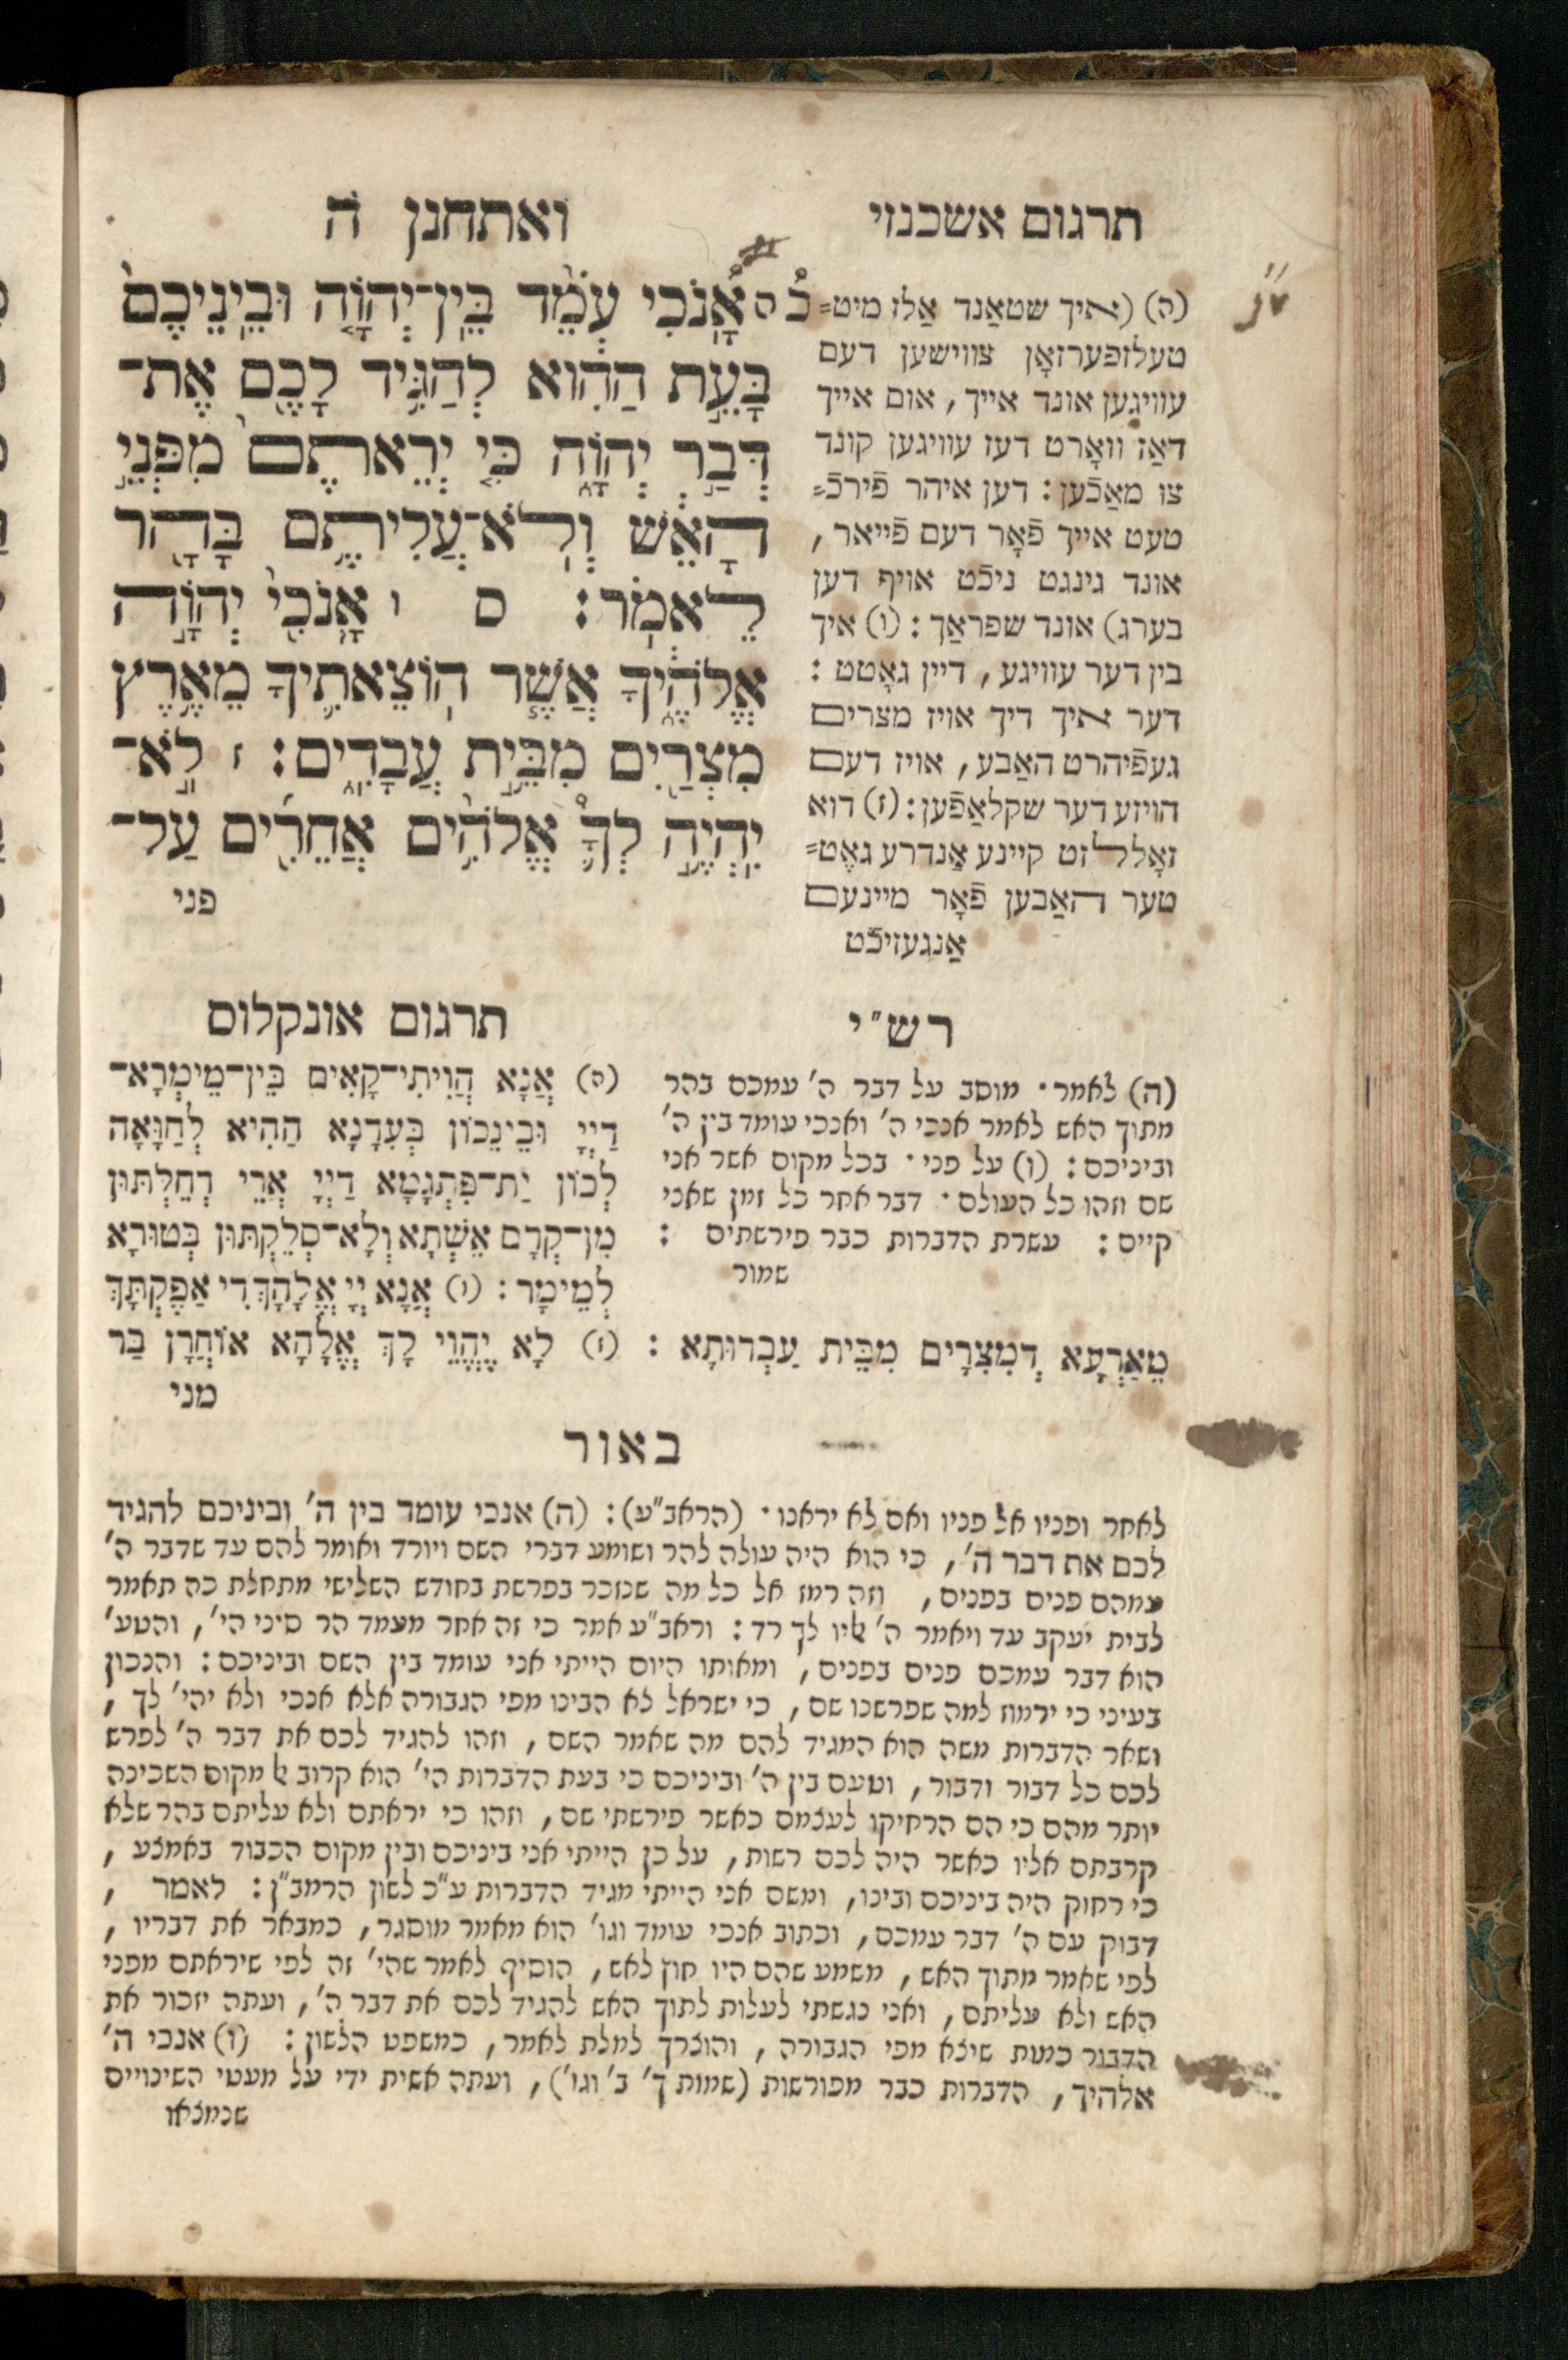 תרגום אשכנזי
ואתחנן ה
(ה) (איך שטאַנד אַלז מיט=
טעלזפערזאָן צווישען דעם
עוויגען אונד אייך, אום אייך
דאַז וואָרט דעז עוויגען קונד
צו מאַכֿען: דען איהר פֿירכֿ=
טעט אייך פֿאָר דעם פֿייאר,
אונד גינגט ניכֿט אויף דען
בערג) אונד שפראַך: (ו) איך
בין דער עוויגע, דיין גאָטט:
דער איך דיך אויז מצרים
געפֿיהרט האַבע, אויז דעם
הויזע דער שקלאַפֿען: (ז) דוא
זאָללזט קיינע אַנדרע גאֶט=
טער האַבען פֿאָר מיינעם
אַנגעזיכֿט
ה אָנֹכִי עֹמֵד בֵּין־יְהוָה וּבֵינֵיכֶם
בָּעֵת הַהִוא לְהַגִּיד לָכֶם אֶת־
דְּבַר יְהוָה כִּי יְרֵאתֶם מִפְּנֵי
הָאֵשׁ וְלֹא־עֲלִיתֶם בָּהָר
לֵאמֹר: ס ו אָנֹכִי יְהוָה
אֱלֹהֶיךָ אֲשֶׁר הוֹצֵאתִיךָ מֵאֶרֶץ
מִצְרַיִם מִבֵּית עֲבָדִים: ז לֹא־
יִהְיֶה לְךָ אֱלֹהִים אֲחֵרִים עַל־
פני
רש"י
(ה) לאמר· מוסב על דבר ה' עמכם בהר
מתוך האש לאמר אנכי ה' ואנכי עומד בין ה'
וביניכם: (ו) על פני· בכל מקום אשר אני
שם וזהו כל העולם· דבר אחר כל זמן שאני
קיים: עשרת הדברות כבר פירשתים:
שמור
תרגום אונקלוס
(ה) אֲנָא הֲוֵיתִי־קָאִים בֵּין־מֵימְרָא־
דַיְיָ וּבֵינֵכוֹן בְּעִדָּנָא הַהִיא לְחַוָּאָה
לְכוֹן יַת־פִּתְגָמָא דַיְיָ אֲרֵי דְחֵלְתּוּן
מִן־קֳדָם אֵשְׁתָא וְלָא־סְלֵקְתּוּן בְּטוּרָא
לְמֵימָר: (ו) אֲנָא יְיָ אֱלָהָךְ דִי אַפֶּקְתָּךְ
מֵאַרְעָא דְמִצְרַיִם מִבֵּית עַבְדוּתָא: (ז) לָא יֶהֱוֵי לָךְ אֱלָהָא אוֹחֲרָן בַּר
מני
באור
לאחר ופניו אל פניו ואם לא יראנו· (הראב"ע): (ה) אנכי עומד בין ה' וביניכם להגיד
לכם את דבר ה', כי הוא היה עולה להר ושומע דברי השם ויורד ואומר להם עד שדבר ה'
עמהם פנים בפנים, וזה רמז אל כל מה שנזכר בפרשת בחודש השלישי מתחלת כה תאמר
לבית יעקב עד ויאמר ה' אליו לך רד: וראב"ע אמר כי זה אחר מעמד הר סיני הי', והטע'
הוא דבר עמכם פנים בפנים, ומאותו היום הייתי אני עומד בין השם וביניכם: והנכון
בעיני כי ירמוז למה שפרשנו שם, כי ישראל לא הבינו מפי הגבורה אלא אנכי ולא יהי' לך,
ושאר הדברות משה הוא המגיד להם מה שאמר השם, וזהו להגיד לכם את דבר ה' לפרש
לכם כל דבור ודבור, וטעם בין ה' וביניכם כי בעת הדברות הי' הוא קרוב אל מקום השכינה
יותר מהם כי הם הרחיקו לעצמם כאשר פירשתי שם, וזהו כי יראתם ולא עליתם בהר שלא
קרבתם אליו כאשר היה לכם רשות, על כן הייתי אני ביניכם ובין מקום הכבוד באמצע,
כי רחוק היה ביניכם ובינו, ומשם אני הייתי מגיד הדברות ע"כ לשון הרמב"ן: לאמר,
דבוק עם ה' דבר עמכם, וכתוב אנכי עומד וגו' הוא מאמר מוסגר, כמבאר את דבריו,
לפי שאמר מתוך האש, משמע שהם היו חוץ לאש, הוסיף לאמר שהי' זה לפי שיראתם מפני
האש ולא עליתם, ואני נגשתי לעלות לתוך האש להגיד לכם את דבר ה', ועתה יזכור את
הדבור כמות שיצא מפי הגבורה, והוצרך למלת לאמר, כמשפט הלשון: (ו) אנכי ה'
אלהיך, הדברות כבר מפורשות (שמות ך' ב' וגו'), ועתה אשית ידי על מעטי השינויים
שנמצאו